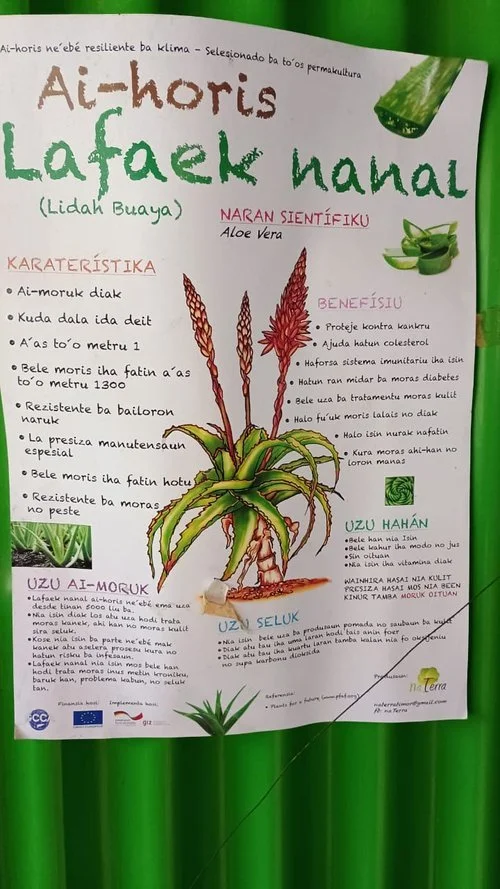 Ai-horis ne'ebé resiliente ba klima - Selesionado ba to'os permakultura
Ai-horis
Lafaek nanal
(Lidah Buaya)
NARAN SIENTÍFIKU
Aloe Vera
KARATERÍSTIKA
• Ai-moruk diak
• Kuda dala ida deit
• A'as to'o metru 1
• Bele moris iha fatin a'as
to'o metru 1300
• Rezistente ba bailoron
naruk
• La presiza manutensaun
espesial
• Bele moris iha fatin hotu
• Rezistente ba moras
no peste
BENEFÍSIU
• Proteje kontra kankru
• Ajuda hatun colesterol
• Haforsa sistema imunitariu iha isin
• Hatun ran midar ba moras diabetes
• Bele uza ba tratamentu moras kulit
• Halo fu'uk moris lalais no diak
• Halo isin nurak nafatin
• Kura moras ahi-han no
loron manas
UZU HAHÁN
• Bele han nia Isin
• Bele kahur iha modo no jus
• Sin oituan
• Nia isin iha vitamina diak
WAINHIRA HASAI NIA KULIT
PRESIZA HASAI MOS NIA BEEN
KINUR TAMBA MORUK OITUAN
UZU AI-MORUK
• Lafaek nanal ai-horis ne'ebé ema uza
desde tinan 5000 liu ba.
• Nia isin diak los atu uza hodi trata
moras kanek, ahi han no moras kulit
sira seluk.
• Kose nia isin ba parte ne'ebé mak
kanek atu aselera prosesu kura no
hatun risku ba infesaun.
• Lafaek nanal nia isin mos bele han
hodi trata moras inus metin kroniku,
baruk han, problema kabun, no seluk
tan.
UZU SELUK
• Nia isin bele uza ba produsaun pomada no saubaun ba kulit
• Diak atu tau iha uma laran hodi tais anin foer
• Diak atu tau iha kuartu laran tamba kalan nia fo oksijeniu
no supa karbonu dioksida
Finansia husi:
Implementa husi:
GCCA
giz
Referensia:
• Plants for a future (www.pfaf.org)
Produsaun:
naTerra
naterratimor@gmail.com
FB: naTerra